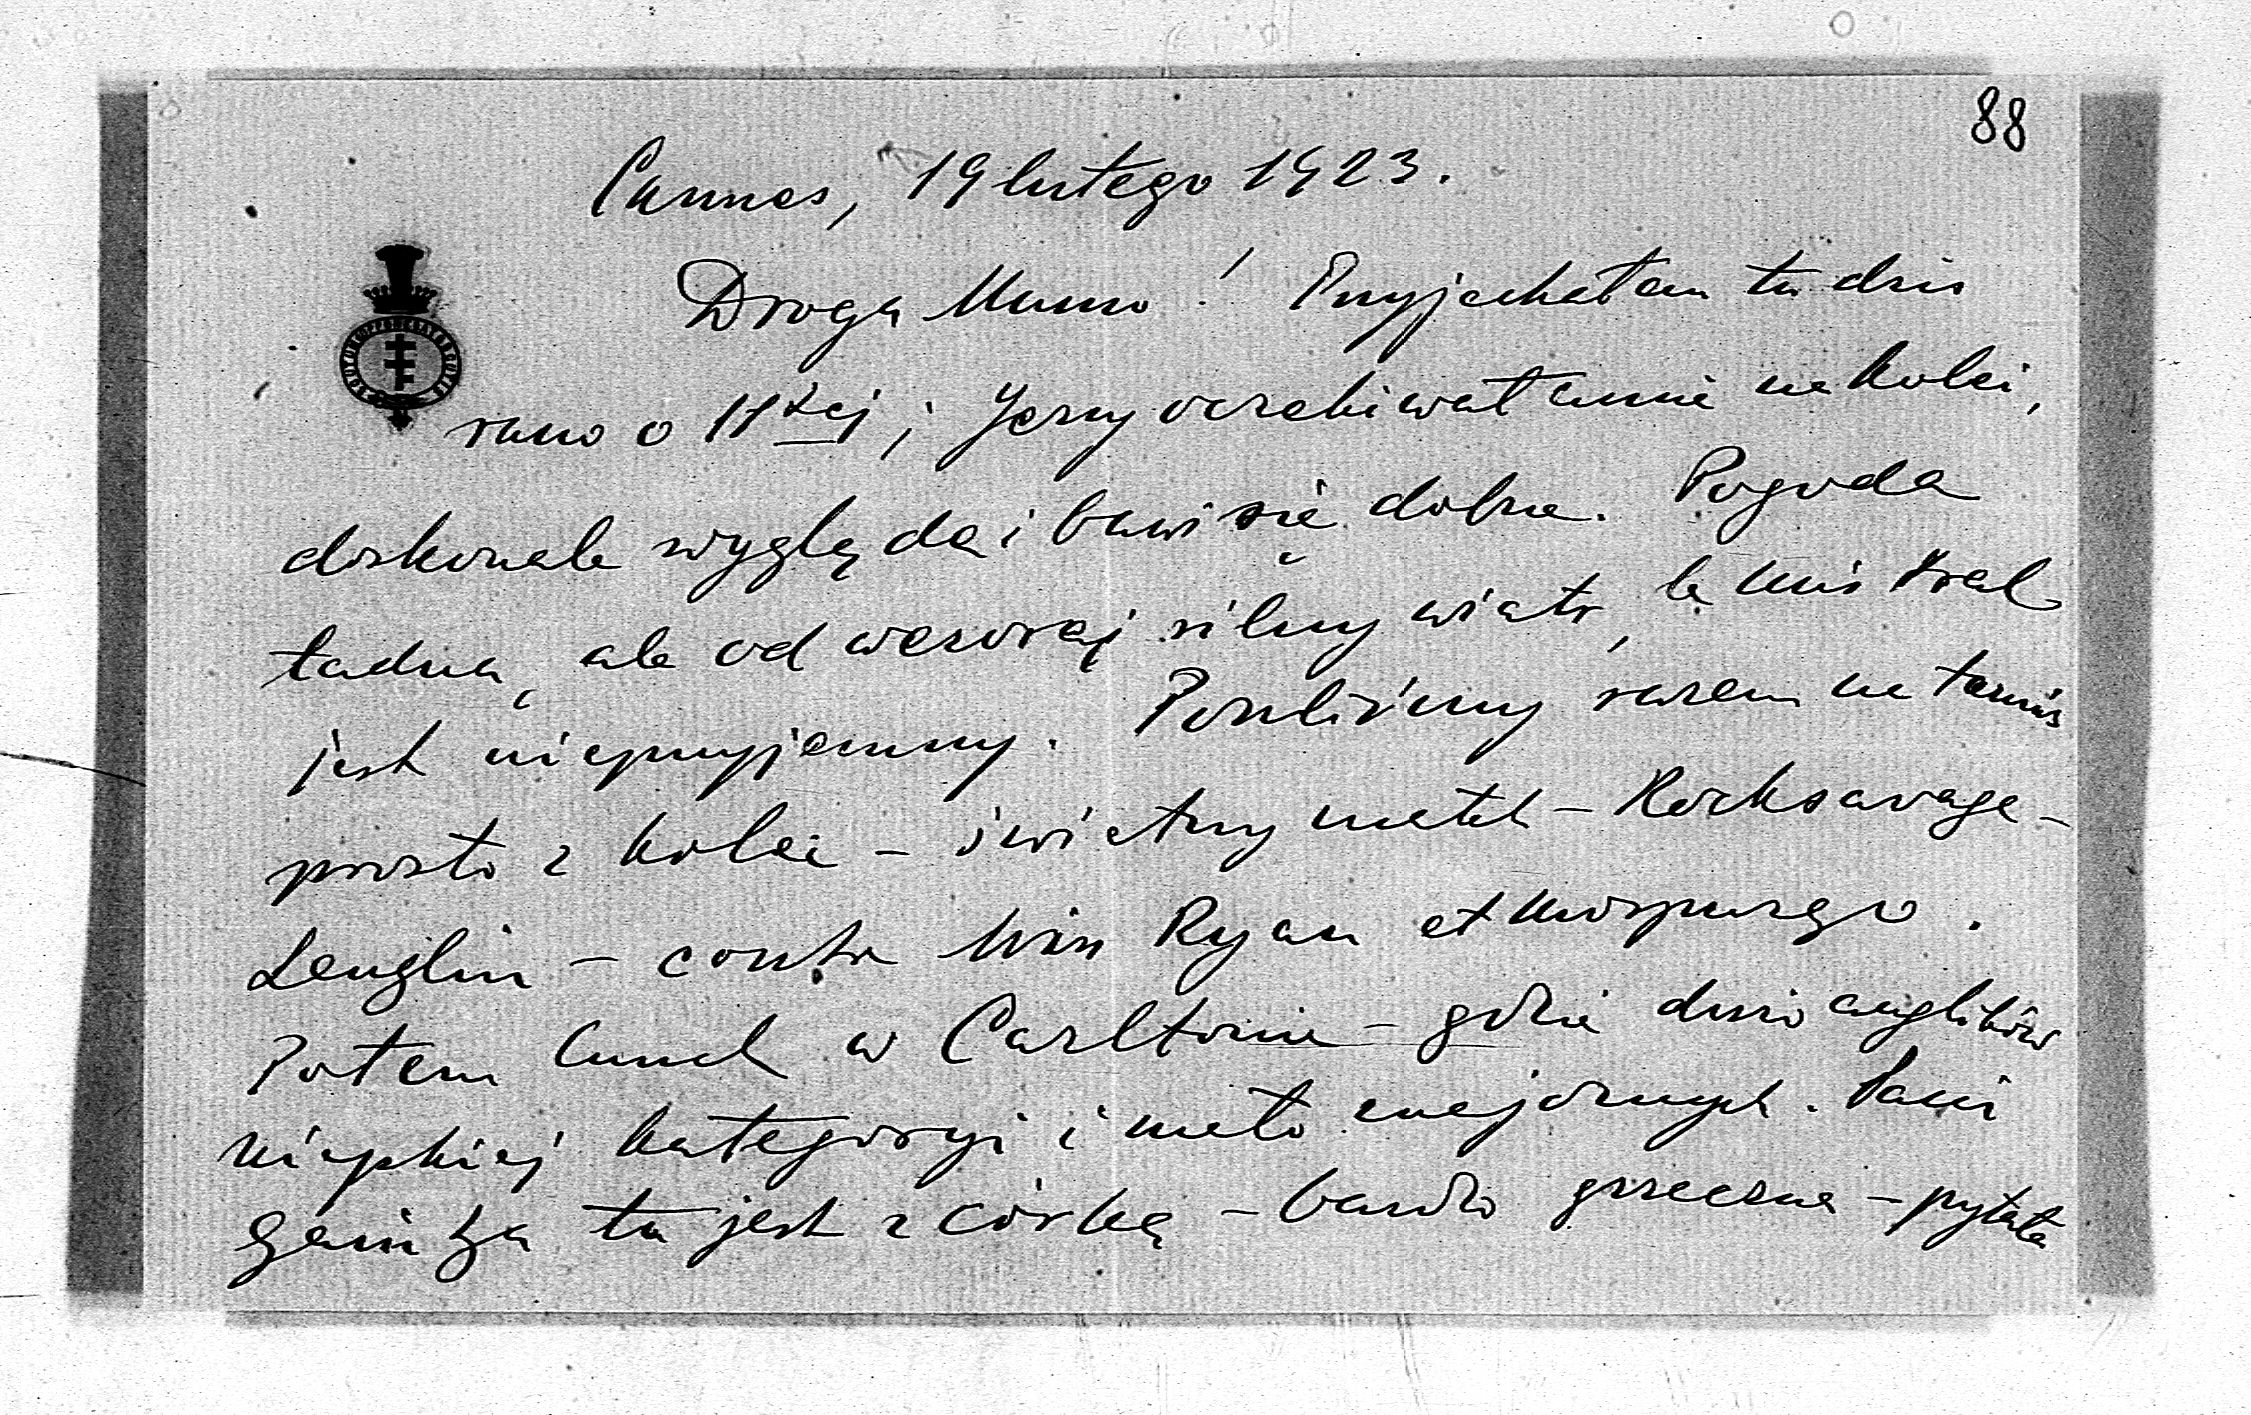 88
Cannes, 19 lutego 1923.
Droga Mamo! Przyjechałem tu dziś
rano o 11tej; Jerzy oczekiwał mnie na kolei,
doskonale wygląda i bawi się dobrze. Pogoda
ładna, ale od wczoraj silny wiatr, le mistral
jest nieprzyjemny. Poszliśmy razem na tennis
prosto z kolei – świetny match – Rocksavage –
Lenglen – contre Miss Ryan et Morpurgo.
Potem lunch w Carltonie – gdzie dużo anglików
kiepskiej kategoryi i mało znajomych. Pani
tu jest z córką – bardzo grzeczna – pytała